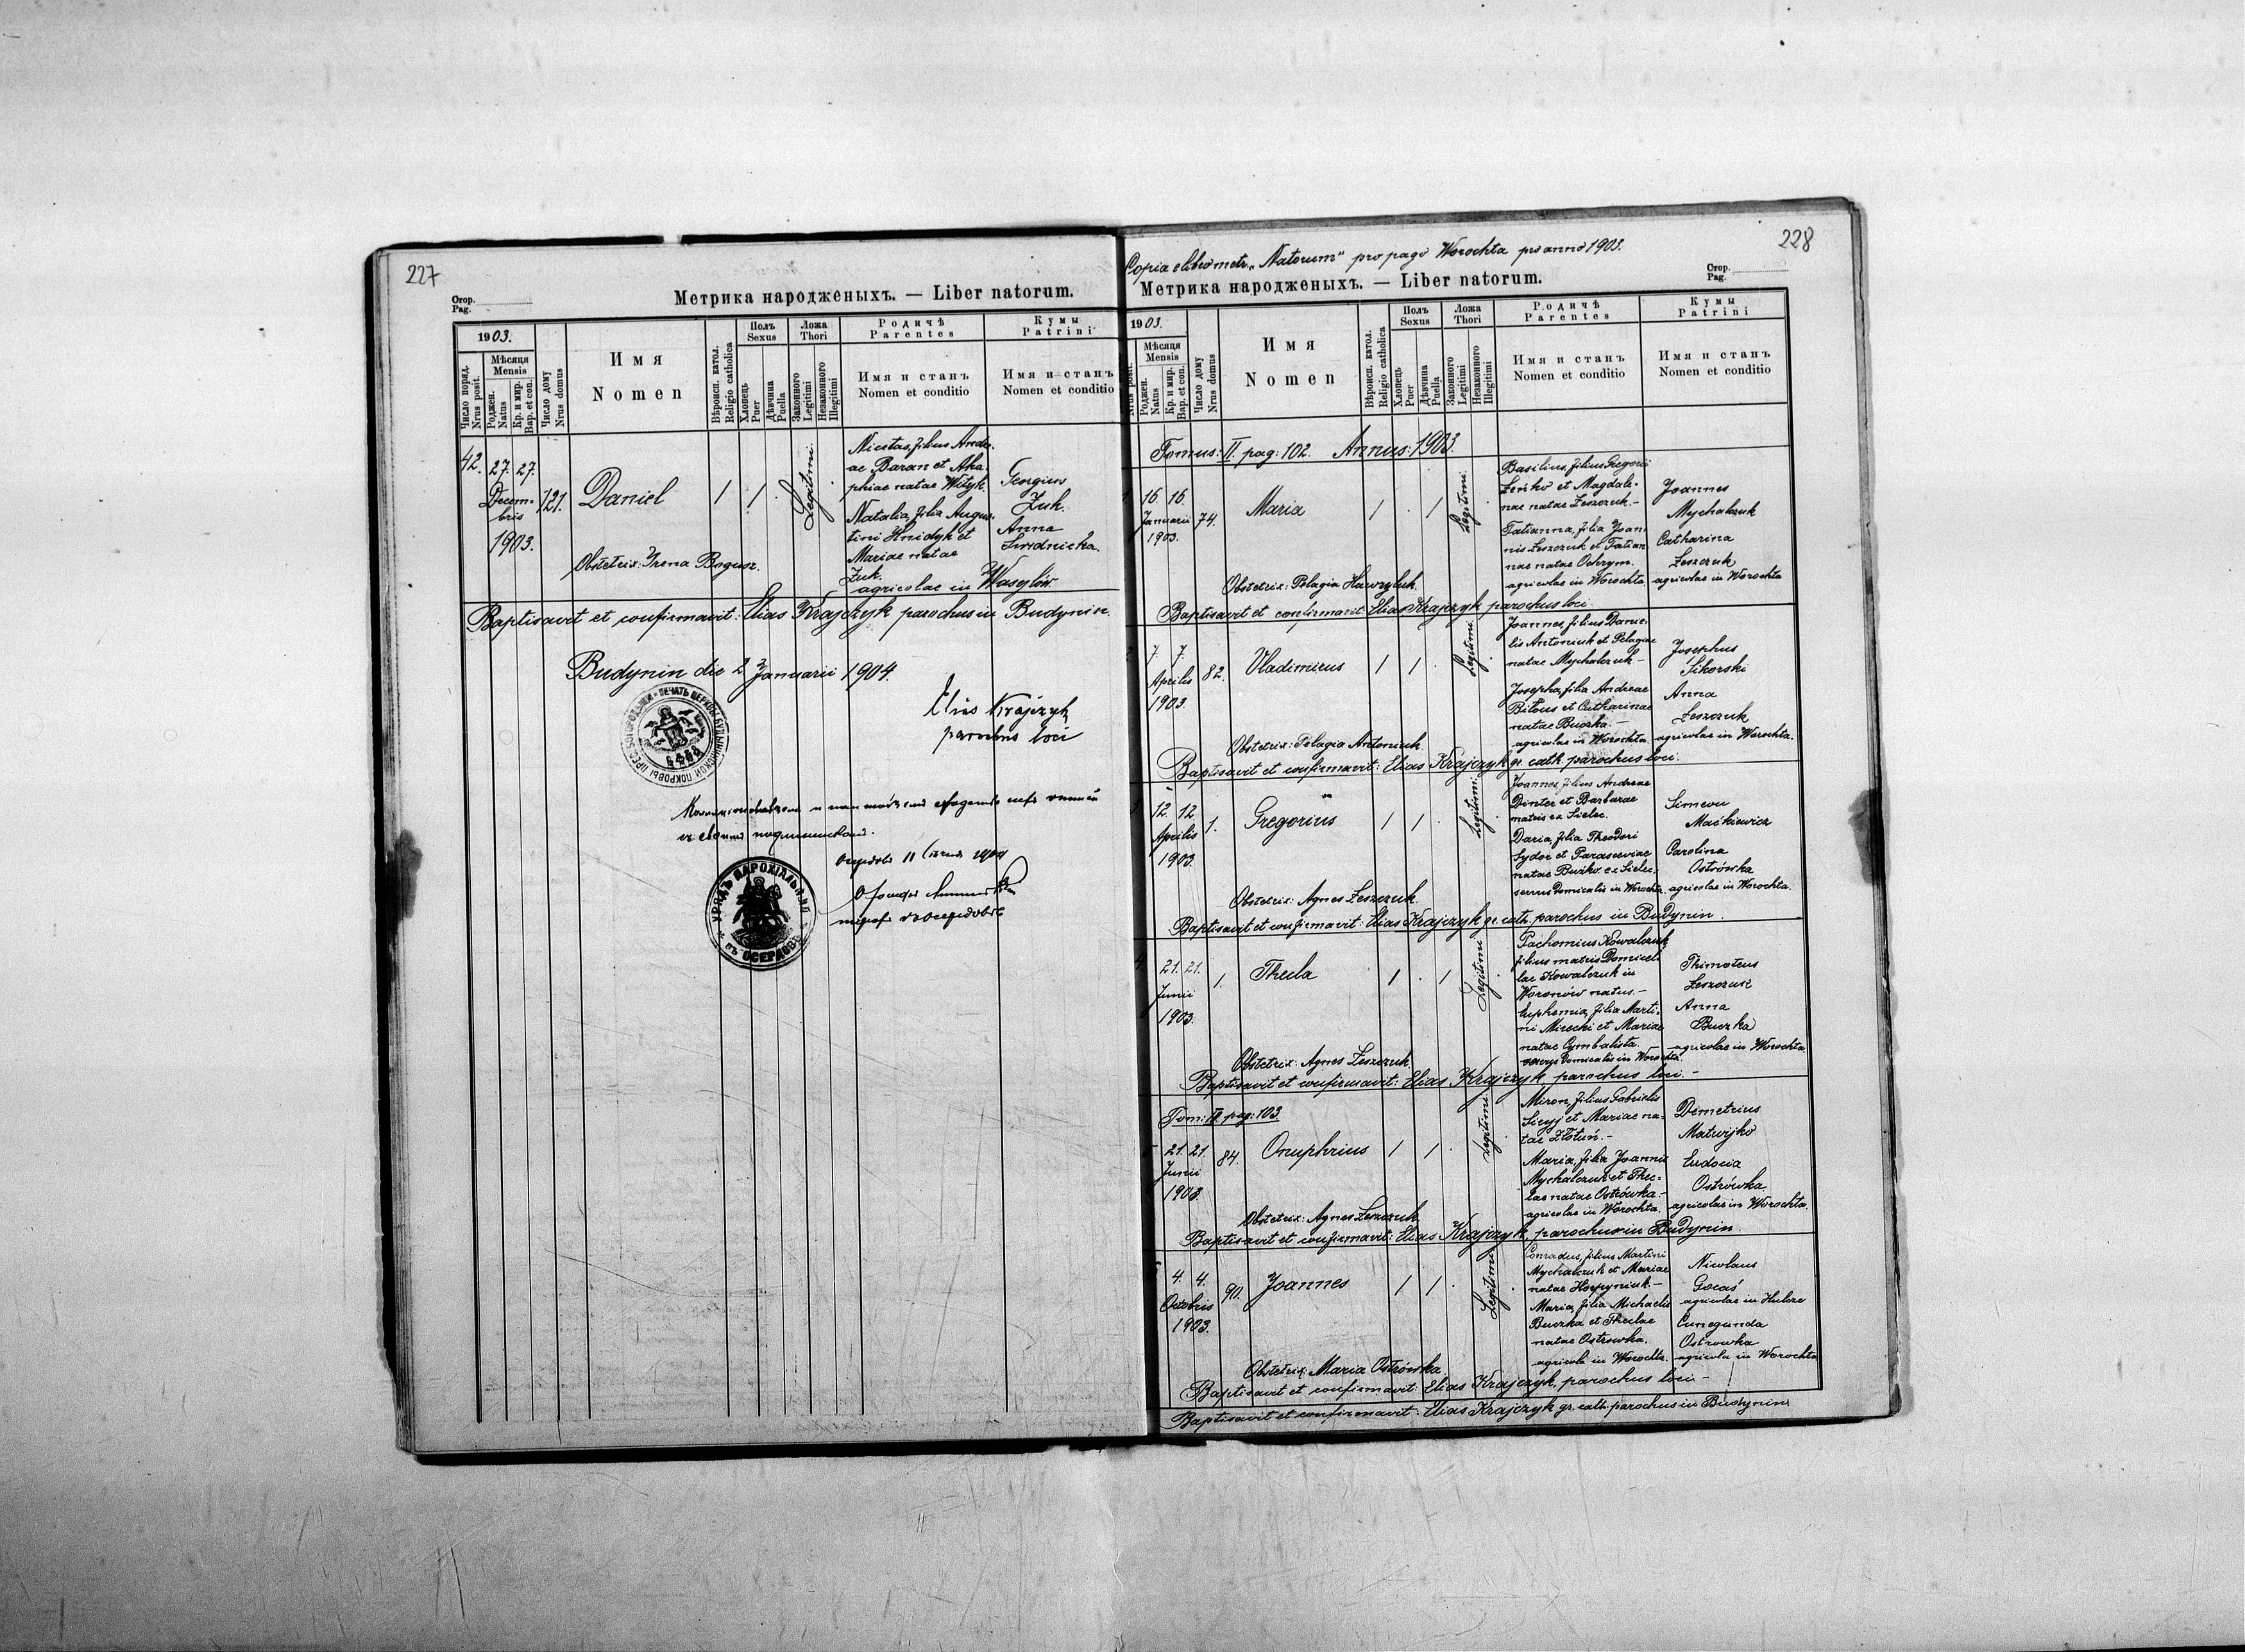 227
Стор.
Pag.
Метрика народженыхъ. — Liber natorum.
1903.
Число поряд.
Nrus posit.
Мѣсяця
Mensis
Роджен.
Natus
Кр. и мир.
Bap. et con.
Число дому
Nrus domus
Имя
Nomen
Вѣроисп. катол.
Religio catholica
Полъ
Sexus
Хлопець
Puer
Дѣвчина
Puella
Ложа
Thori
Законного
Legitimi
Незаконного
Illegitimi
Родичѣ
Parentes
Имя и станъ
Nomen et conditio
Кумы
Patrini
Имя и станъ
Nomen et conditio
42.
27. 27.
Decem-
bris
1903.
121.
Daniel
Legitimi
Nicetas, filius Andre-
ae Baran et Aha-
phiae natae Wityk.
Natalia, filia Augus-
tini Hnidyk et
Mariae natae
Żuk.
agricolae in Wasylów
Georgius
Żuk.
Anna
Swidnicka.
Obstetrix: Irena Bogusz.
Baptisavit et confirmavit: Elias Krajczyk parochus in Budynin.
Budynin die 2 Januarii 1904.
Elias Krajczyk
parochus loci
УРЯДЪ ПАРОХІАЛЬНЫЙ
въ ОСЕРДОВѢ
228
Copia e libro metr. „Natorum" pro pago Worochta pro anno 1903.
Стор.
Pag.
Метрика народженыхъ. — Liber natorum.
1903.
Nrus posit.
Мѣсяця
Mensis
Роджен.
Natus
Кр. и мир.
Bap. et con.
Число дому
Nrus domus
Имя
Nomen
Вѣроисп. катол.
Religio catholica
Полъ
Sexus
Хлопець
Puer
Дѣвчина
Puella
Ложа
Thori
Законного
Legitimi
Незаконного
Illegitimi
Родичѣ
Parentes
Имя и станъ
Nomen et conditio
Кумы
Patrini
Имя и станъ
Nomen et conditio
Tomus: II. pag: 102. Annus: 1903.
16. 16.
Januarii
1903.
74.
Maria
Legitimi
Basilius, filius Gregorii
Zeńko et Magdale-
nae natae Leszczuk.-
Tatianna, filia Joan-
nis Leszczuk et Tatian-
nae natae Ochrym.
agricolae in Worochta
Joannes
Mychalczuk
Catharina
Leszczuk
agricolae in Worochta
Obstetrix: Pelagia Hawryluk.
Baptisavit et confirmavit: Elias Krajczyk parochus loci
7. 7.
Aprilis
1903.
82.
Vladimirus
Legitimi
Joannes, filius Danie-
lis Antoniuk et Pelagiae
natae Mychalczuk -
Josepha, filia Andreae
Biłous et Catharinae
natae Buczka. -
agricolae in Worochta.
Josephus
Sikorski
Anna
Leszczuk
agricolae in Worochta.
Obstetrix: Pelagia Antoniuk.
Baptisavit et confirmavit: Elias Krajczyk gr. cath. parochus loci.
12. 12.
Aprilis
1903.
1.
Gregorius
Legitimi
Joannes, filius Andreae
Dinter et Barbarae
matris ex Sielec.
Daria, filia Theodori
Sydor et Parasceviae
natae Bużko ex Sielec.
servus Domicalis in Worochta.
Simeon
Maćkiewicz
Carolina
Ostrówka
agricolae in Worochta.
Obstetrix: Agnes Leszczuk.
Baptisavit et confirmavit: Elias Krajczyk gr. cath. parochus in Budynin.
21. 21.
Junii
1903.
1.
Thecla
Legitimi
Pachomius Kowalczuk,
filius matris Domicel-
lae Kowalczuk in
Woronów natus. -
Euphemia, filia Marti-
ni Mirecki et Mariae
natae Cymbalista.
servus Domicalis in Worochta.
Thimoteus
Leszczuk
Anna
Buczka
agricolae in Worochta.
Obstetrix: Agnes Leszczuk.
Baptisavit et confirmavit: Elias Krajczyk, parochus loci. -
Tom: II pag: 103.
21. 21.
Junii
1903.
84.
Onuphrius
Legitimi
Miron, filius Gabrielis
et Mariae na-
tae
Maria, filia Joannis
Mychalczuk et Thec-
lae natae Ostrówka. -
agricolae in Worochta.
Demetrius
Matwijko
Eudocia
Ostrówka
agricolae in Worochta.
Obstetrix: Agnes Leszczuk.
Baptisavit et confirmavit: Elias Krajczyk, parochus in Budynin.
4. 4.
Octobris
1903.
90.
Joannes
Legitimi
Conradus, filius Martini
Mychalczuk et Mariae
natae
Maria, filia Michaelis
Buczka et Theclae
natae Ostrowka.
agricola in Worochta.
Nicolaus
Gocaś
agricolae in Hulcze
Cunegunda
Ostrowka
agricola in Worochta
Obstetrix: Maria Ostrówka.
Baptisavit et confirmavit: Elias Krajczyk, parochus loci. -
Baptisavit et confirmavit: Elias Krajczyk gr. cath. parochus in Budynin